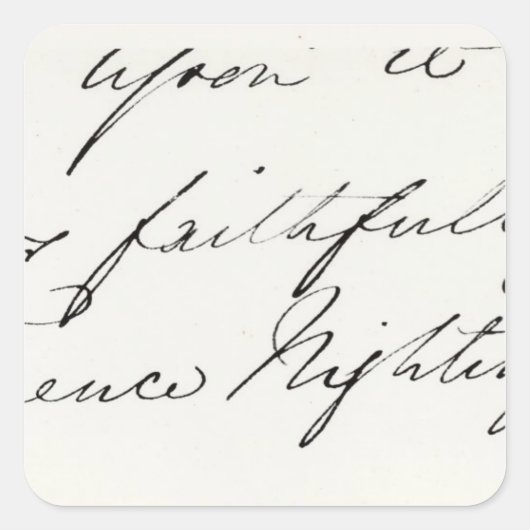 upon it
faithful
ence Nightin